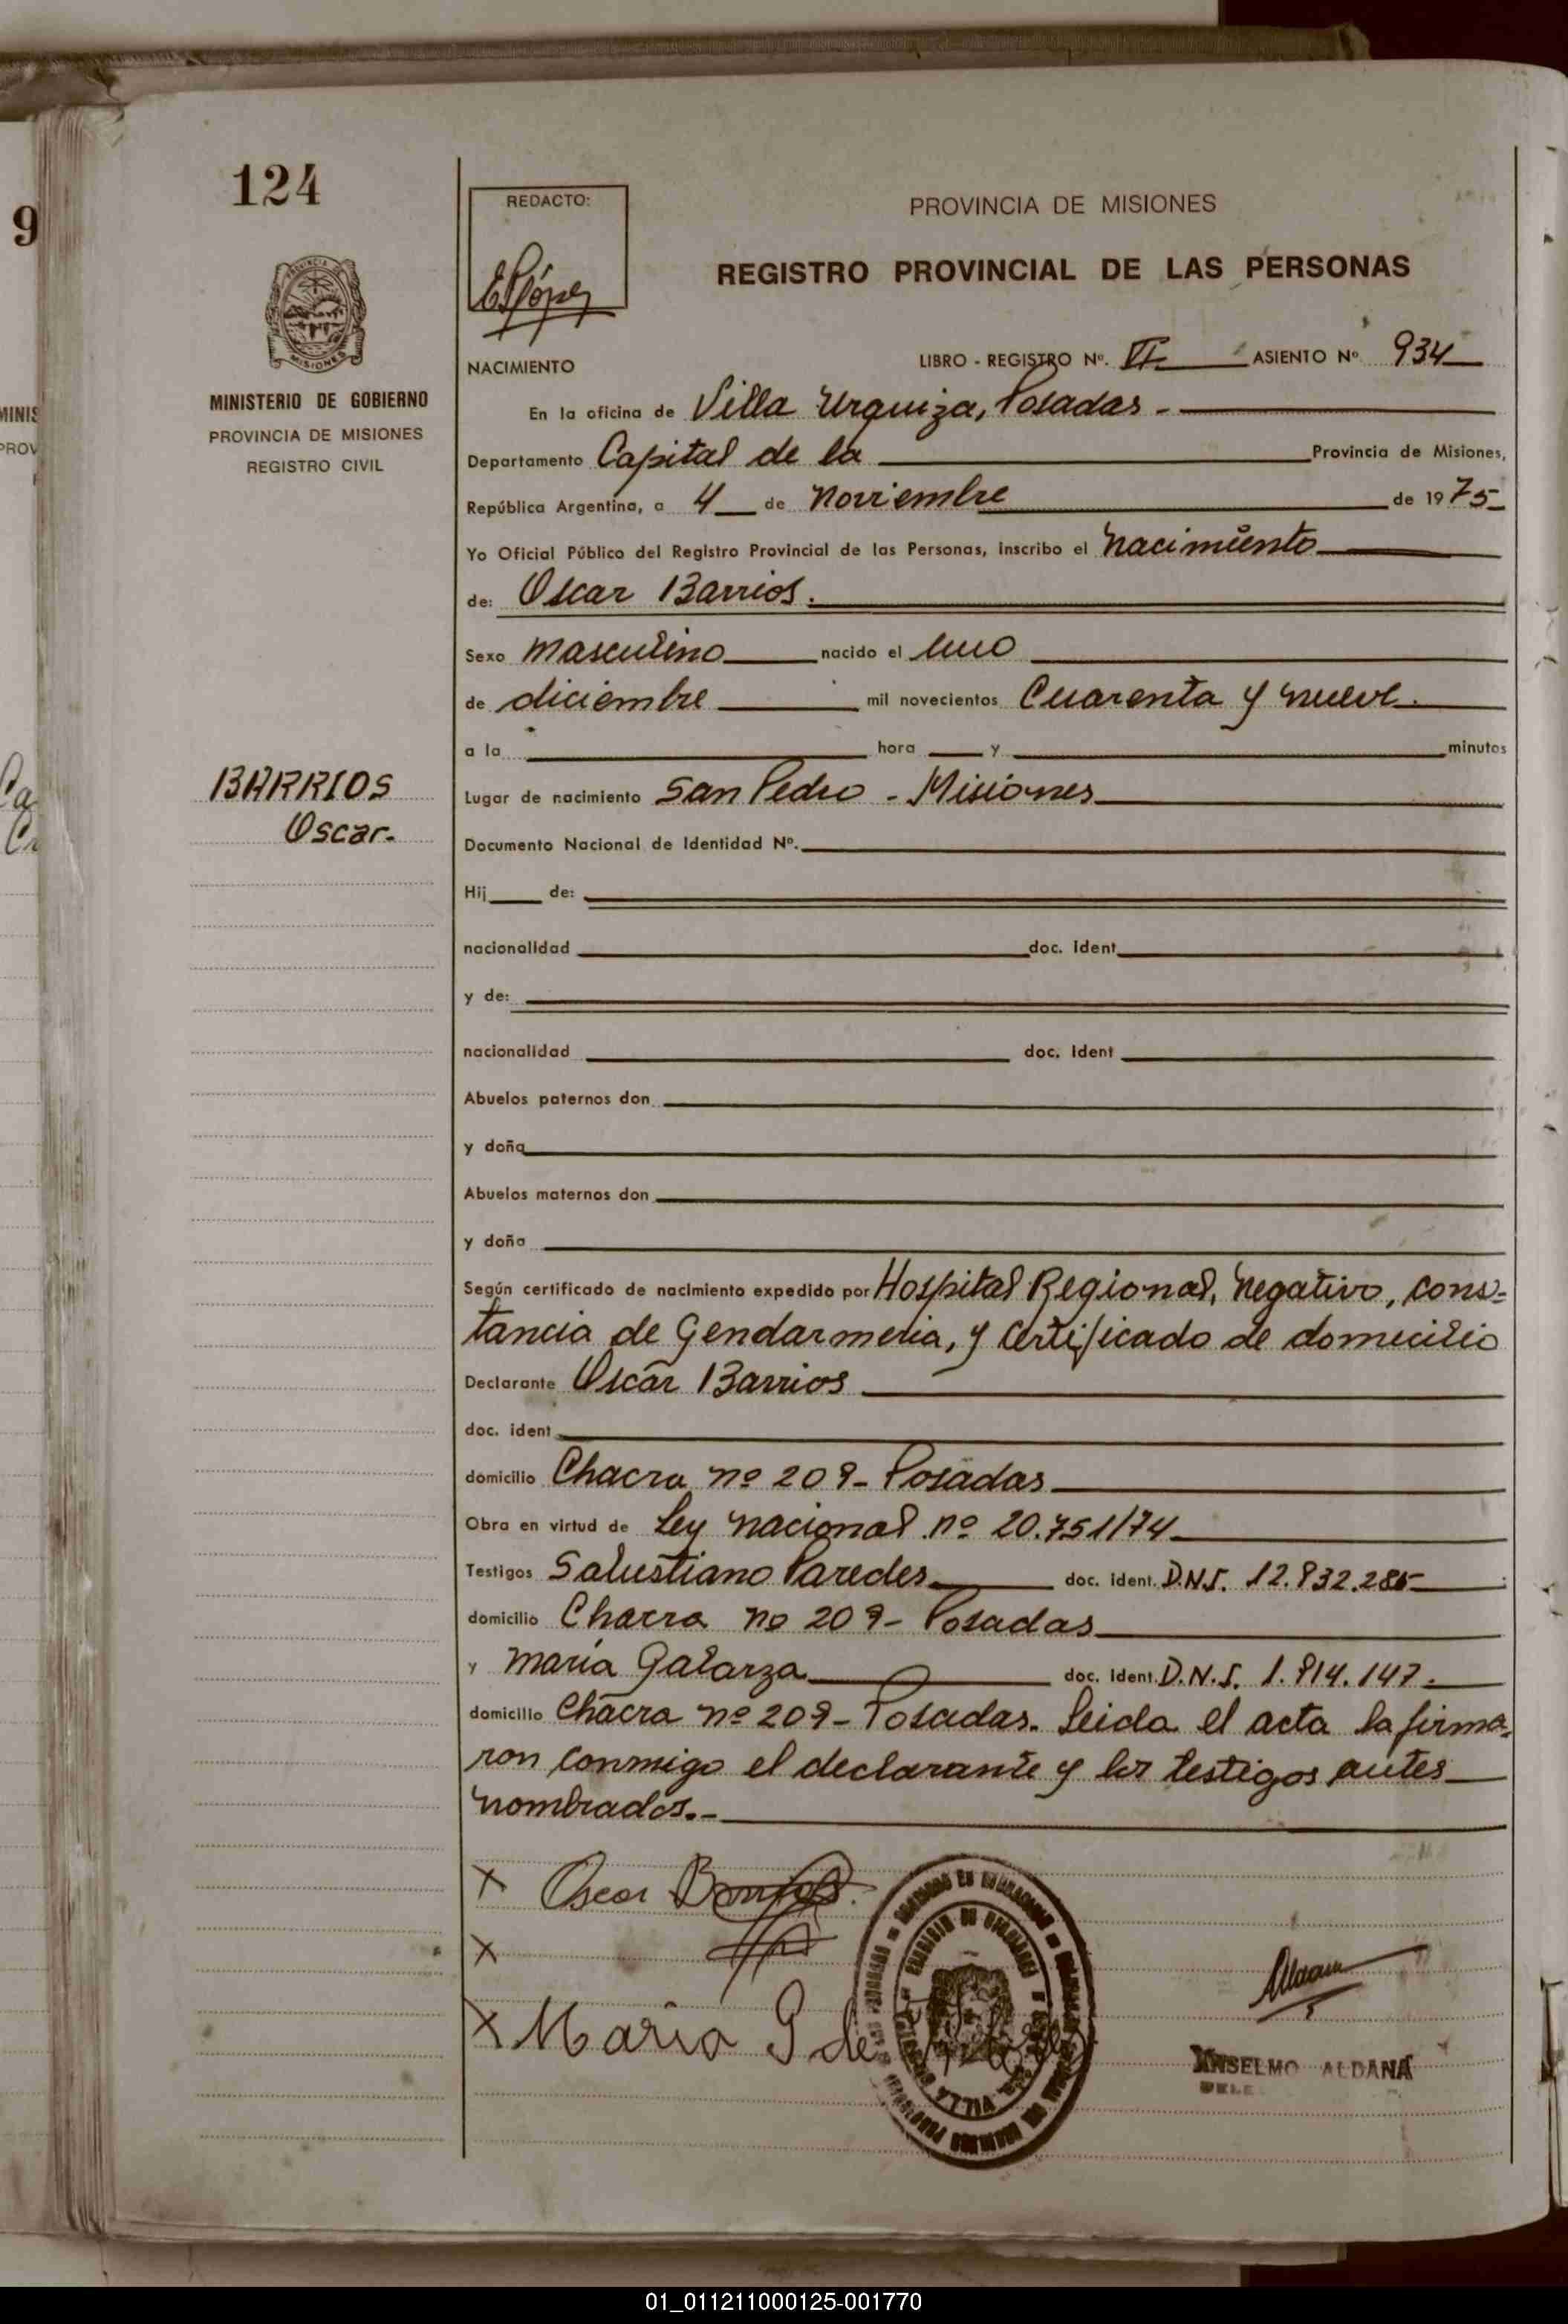 124
9
REDACTO:
ELópez
PROVINCIA DE MISIONES
REGISTRO PROVINCIAL DE LAS PERSONAS
MINISTERIO DE GOBIERNO
PROVINCIA DE MISIONES
REGISTRO CIVIL
NACIMIENTO
LIBRO - REGISTRO Nº. VI ASIENTO Nº 934
En la oficina de Villa Urquiza, Posadas -
Departamento Capital de la Provincia de Misiones,
República Argentina, a 4 de Noviembre de 1975
Yo Oficial Público del Registro Provincial de las Personas, inscribo el nacimiento
de: Oscar Barrios.
Sexo masculino nacido el uno
de diciembre mil novecientos Cuarenta y nueve.
a la hora y minutos
BARRIOS
Oscar.
Lugar de nacimiento San Pedro - Misiones
Documento Nacional de Identidad Nº.
Hij de:
nacionalidad doc. ident
y de:
nacionalidad doc. ident
Abuelos paternos don
y doña
Abuelos maternos don
y doña
Según certificado de nacimiento expedido por Hospital Regional, negativo, cons-
tancia de Gendarmeria, y certificado de domicilio
Declarante Oscar Barrios
doc. ident
domicilio Chacra nº 209 - Posadas
Obra en virtud de Ley nacional nº 20.751/74
Testigos Salustiano Paredes doc. ident. D.N.I. 12.832.285
domicilio Chacra nº 209 - Posadas
y maria Galarza doc. ident. D.N.I. 1.814.147.
domicilio Chacra nº 209 - Posadas. Leida el acta la firma-
ron conmigo el declarante y los testigos antes
nombrados.-
X Oscar Barrios
X
X Maria G de
ANSELMO ALDANA
01_011211000125-001770